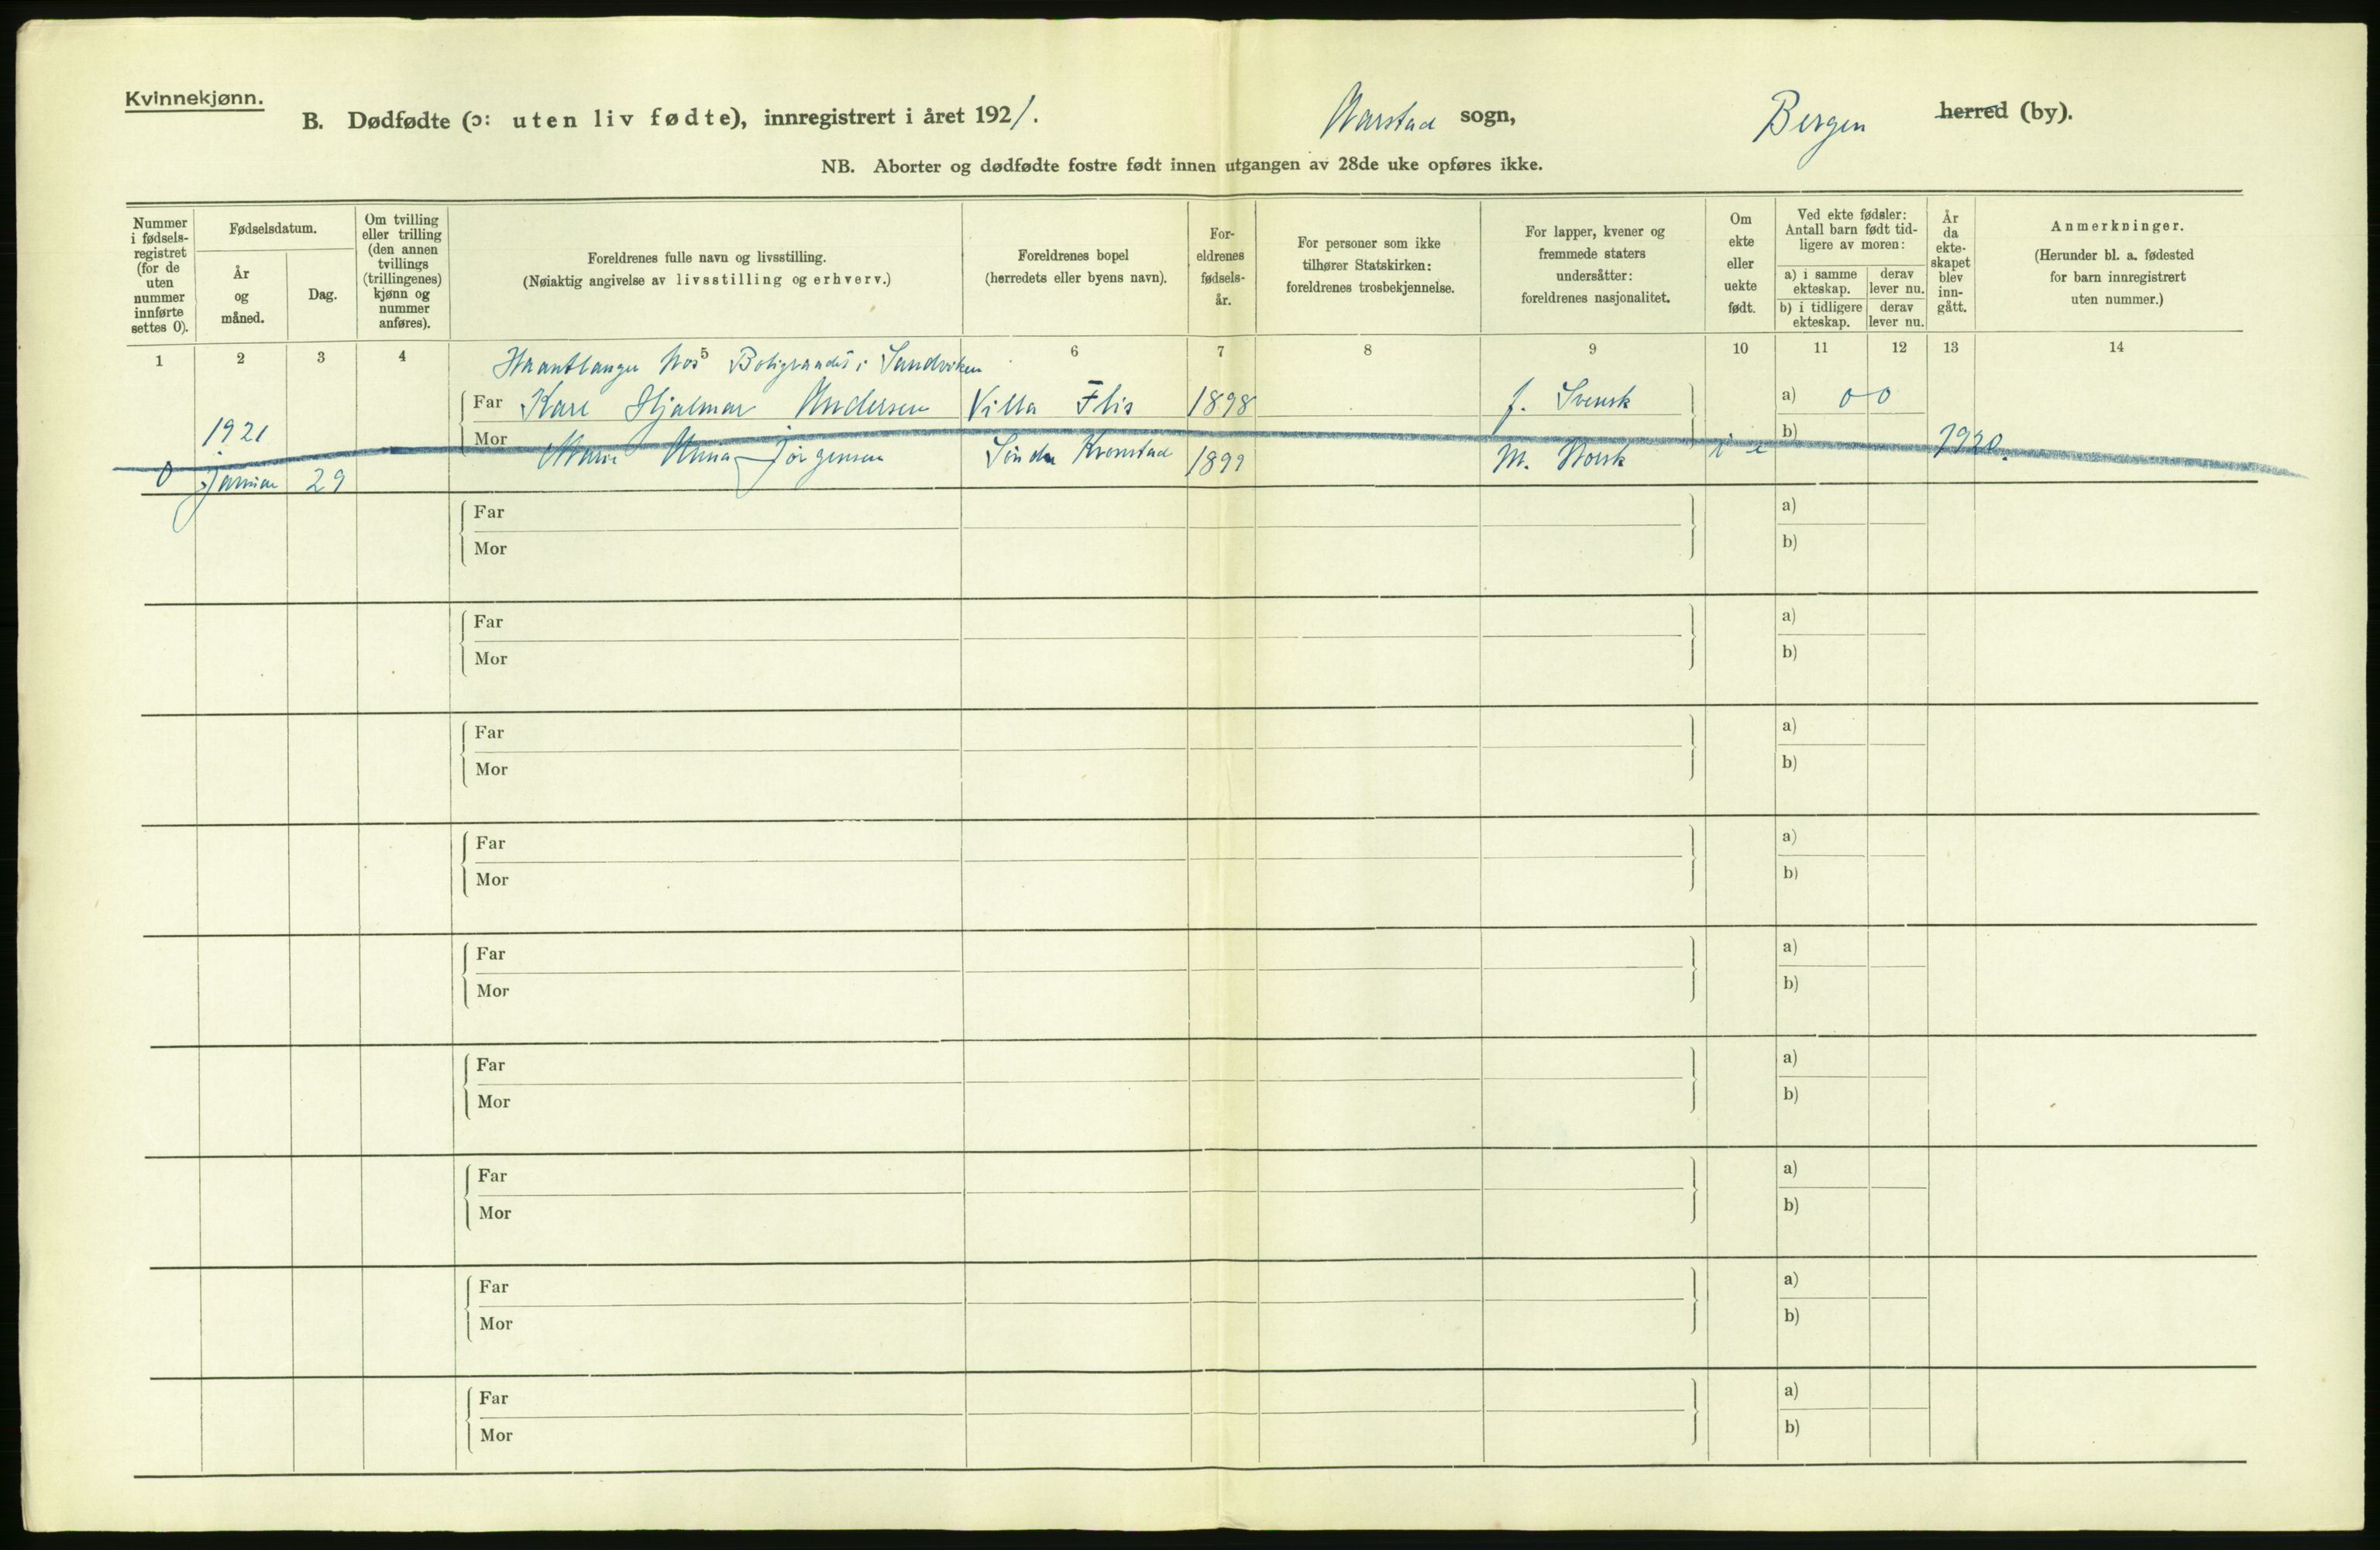 Kvinnekjønn.
B. Dødfødte (ɔ: uten liv fødte), innregistrert i året 1921.
Aarstad sogn,
Bergen herred (by).
NB. Aborter og dødfødte fostre født innen utgangen av 28de uke opføres ikke.
Nummer i fødsels-registret (for de uten nummer innførte settes 0).
Fødselsdatum.
År og måned.
Dag.
Om tvilling eller trilling (den annen tvillings (trillingenes) kjønn og nummer anføres).
Foreldrenes fulle navn og livsstilling.
(Nøiaktig angivelse av livsstilling og erhverv.)
Foreldrenes bopel
(herredets eller byens navn).
For-eldrenes fødsels-år.
For personer som ikke tilhører Statskirken: foreldrenes trosbekjennelse.
For lapper, kvener og fremmede staters undersåtter: foreldrenes nasjonalitet.
Om ekte eller uekte født.
Ved ekte fødsler: Antall barn født tid-ligere av moren:
a) i samme ekteskap.
derav lever nu.
b) i tidligere ekteskap.
derav lever nu.
År da ekte-skapet blev inn-gått.
Anmerkninger.
(Herunder bl. a. fødested for barn innregistrert uten nummer.)
1 2 3 4 5 6 7 8 9 10 11 12 13 14
Haantlanger hos i Sandviken
Far Karl Hjalmar Andersen Villa Flis 1898 f. Svensk a) 0 0
1921
Mor Marie Anna Jørgensen Søndre Kronstad 1899 M. Norsk b) 1920.
0 Januar 29
Far a)
Mor b)
Far a)
Mor b)
Far a)
Mor b)
Far a)
Mor b)
Far a)
Mor b)
Far a)
Mor b)
Far a)
Mor b)
Far a)
Mor b)
Far a)
Mor b)